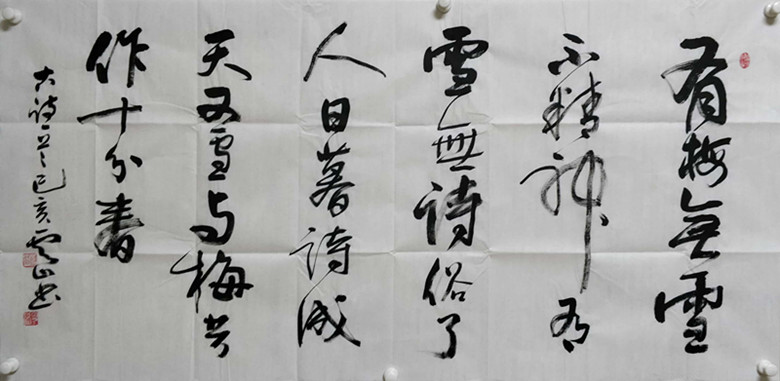 有梅無雪
不精神有
雪無詩俗了
人日暮詩成
天又雪与梅并
作十分春
古诗一首己亥雲山书